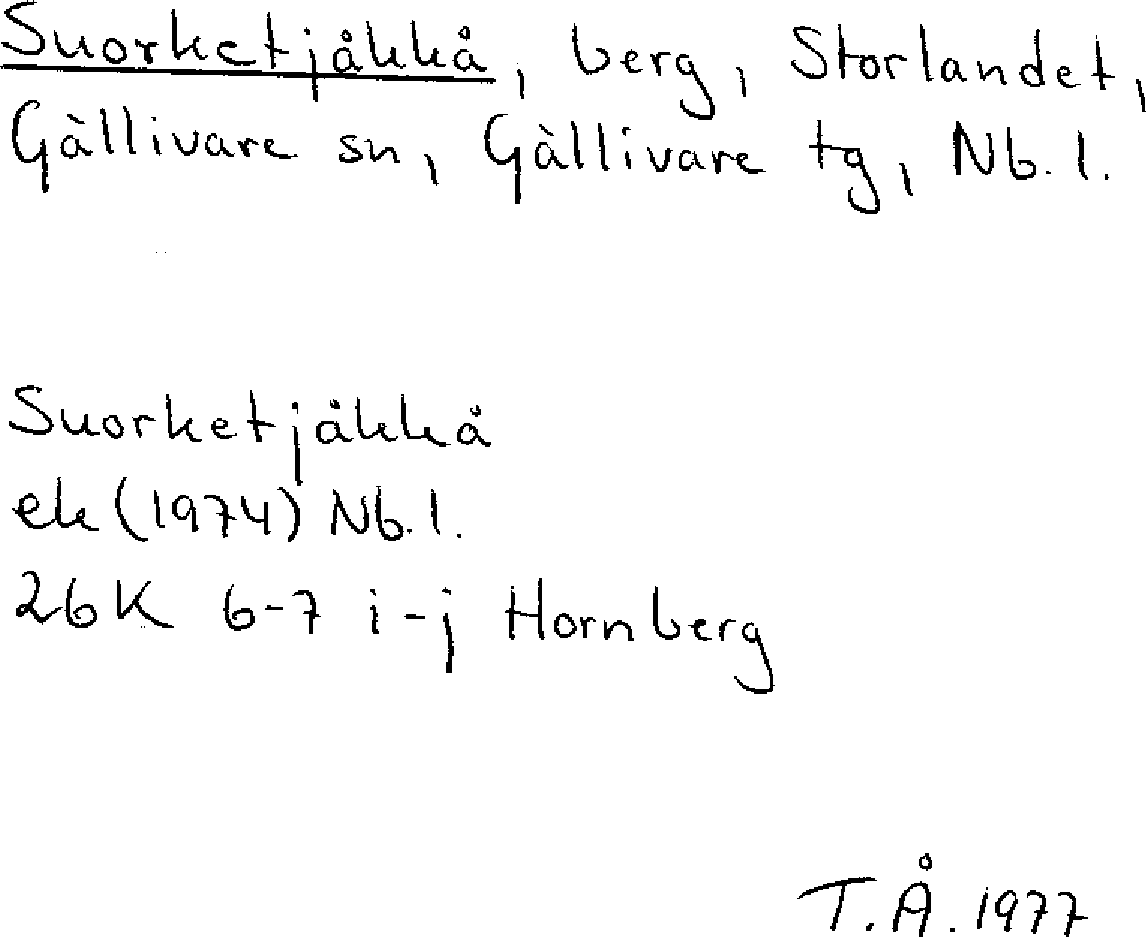 Suorketjåkkå, berg, Storlandet,
Gällivare sn, Gällivare tg, Nb. l.
Suorketjåkkå
ek (1974) Nb. l.
26K 6-7 i-j Hornberg
T.Å. 1977